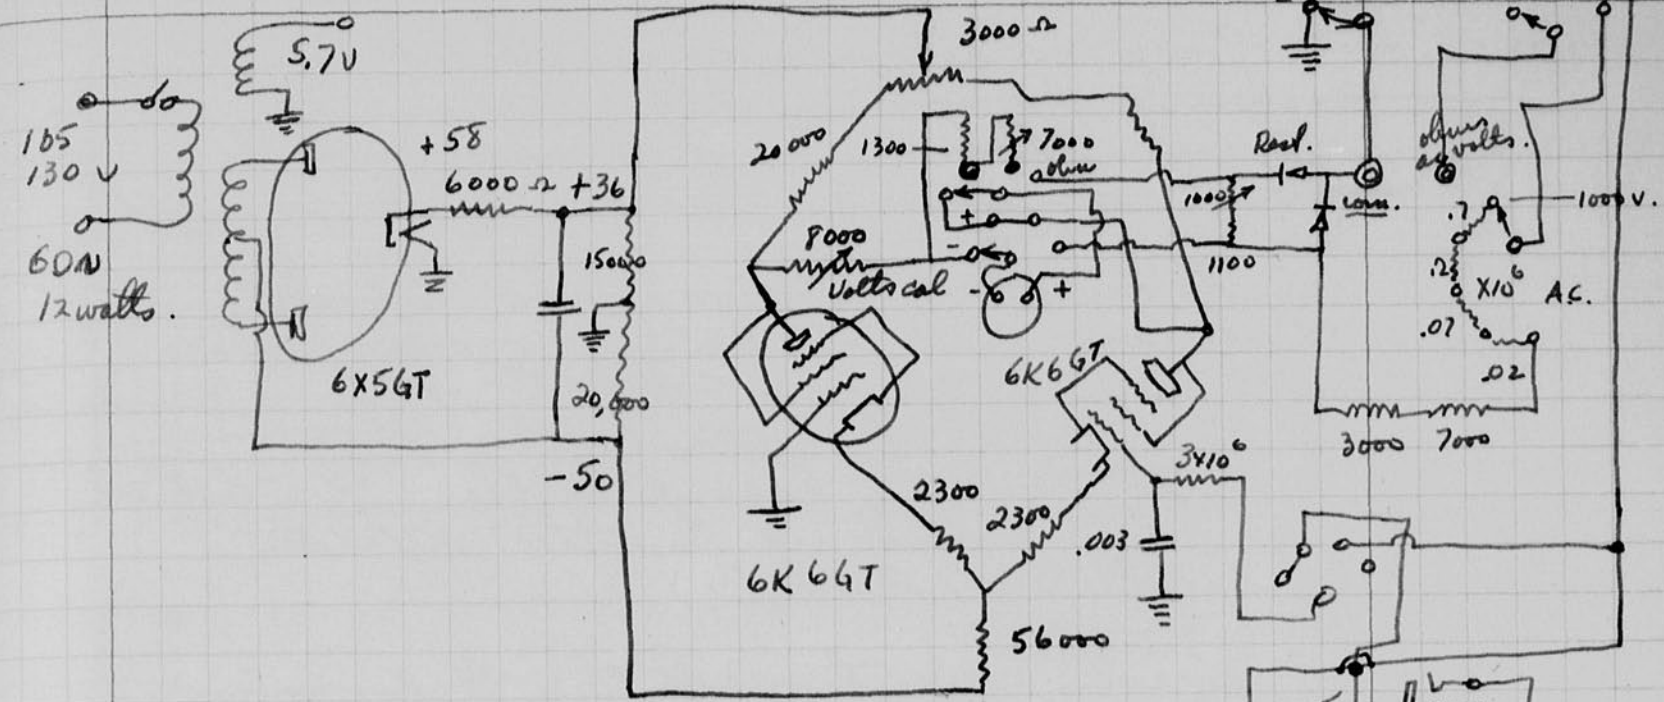 5.7V
105
130 V
60N
12 watts.
+58
6000 Ω +36
15000
20,000
-50
6X5GT
3000 Ω
20000
1300
7000
ohm
8000
Volts cal
+
-
- +
6K6GT
6K6GT
2300
2300
56000
3x10⁶
.003
Rect.
1000
1100
com.
ohms
volts.
1000 V.
.7
.2
X10⁶ A.C.
.07
.02
3000 7000